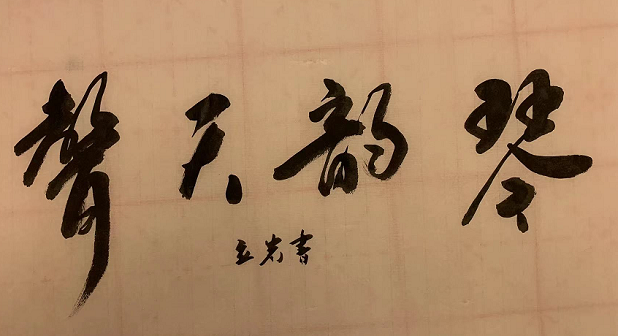 琴韵天聲
立岩書